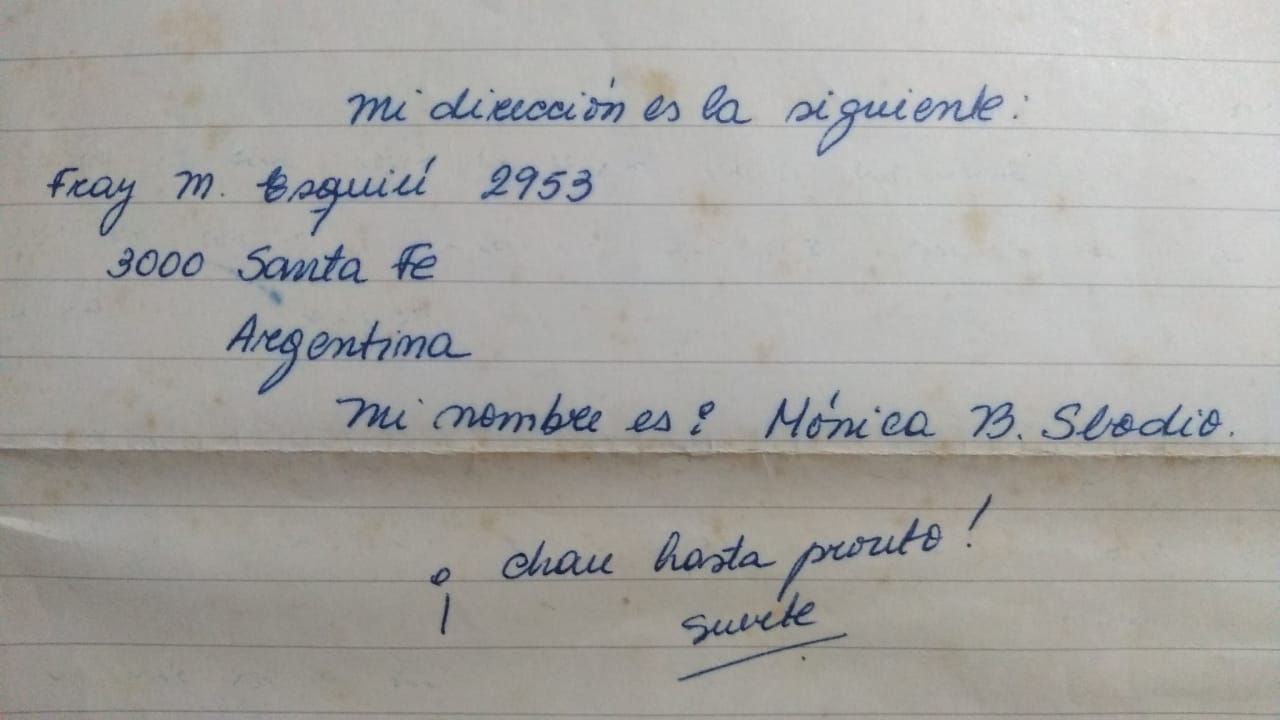 Mi dirección es la siguiente:
Fray M. Esquiú 2953
3000 Santa Fe
Argentina
Mi nombre es: Mónica B. Sbodio.
¡chau hasta pronto!
Suerte